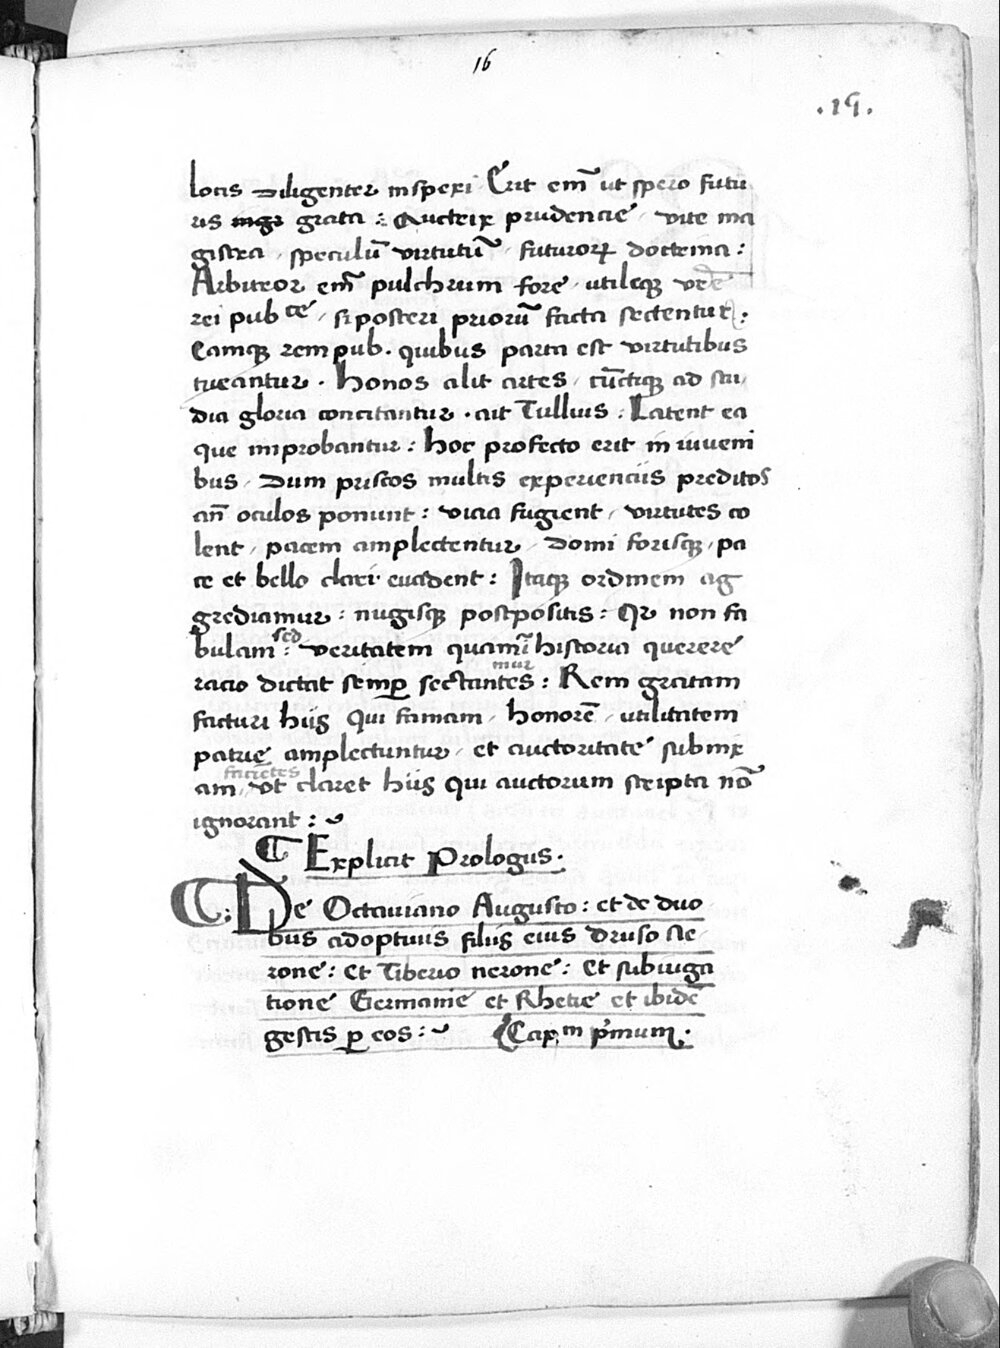 16
.15.
locis diligenter inspexi Erit em̄ ut spero futu
ris grata : Auctrix prudencie , vite ma
gistra , speculū virtutū , futuroꝝ doctrina :
Arbitror em̄ pulchrum fore , utileqꝫ vr̄e
rei pub ce , si posteri priorū facta sectentur :
Eamqꝫ rem pub . quibus parta est virtutibus
tueantur . Honos alit artes , cūctiqꝫ ad stu
dia gloria concitantur . ait Tullius : Latent ea
que improbantur : hoc profecto erit in iuveni
bus , dum priscos multis experienciis preditos
an̄ oculos ponunt : vicia fugient , virtutes co
lent , pacem amplectentur , domi forisqꝫ , pa
ce et bello clari evadent : Itaqꝫ ordinem ag
grediamur : nugisqꝫ postpositis : Qr non fa
sed
bulam : veritatem quam ī historia querere
mur
racio dictat semꝑ sectantes : Rem gratam
facturi hiis qui famam , honorē , utilitatem
patrie amplectuntur , et auctoritate submx
facietes
am , ut claret hiis qui auctorum scripta nō
ignorant :
¶ Explicit Prologus .
¶ : De Octaviano Augusto : et de duo
bus adoptivis filiis eius Druso ne
rone : et Tiberio nerone : et subiuga
tione Germanie et Rhetie et ibidē
gestis ꝑ eos : Capm p̄mum .